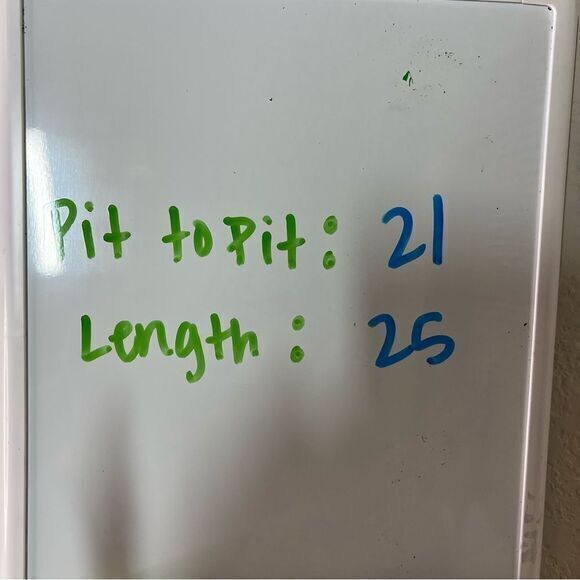 Pit to Pit: 21
Length: 25